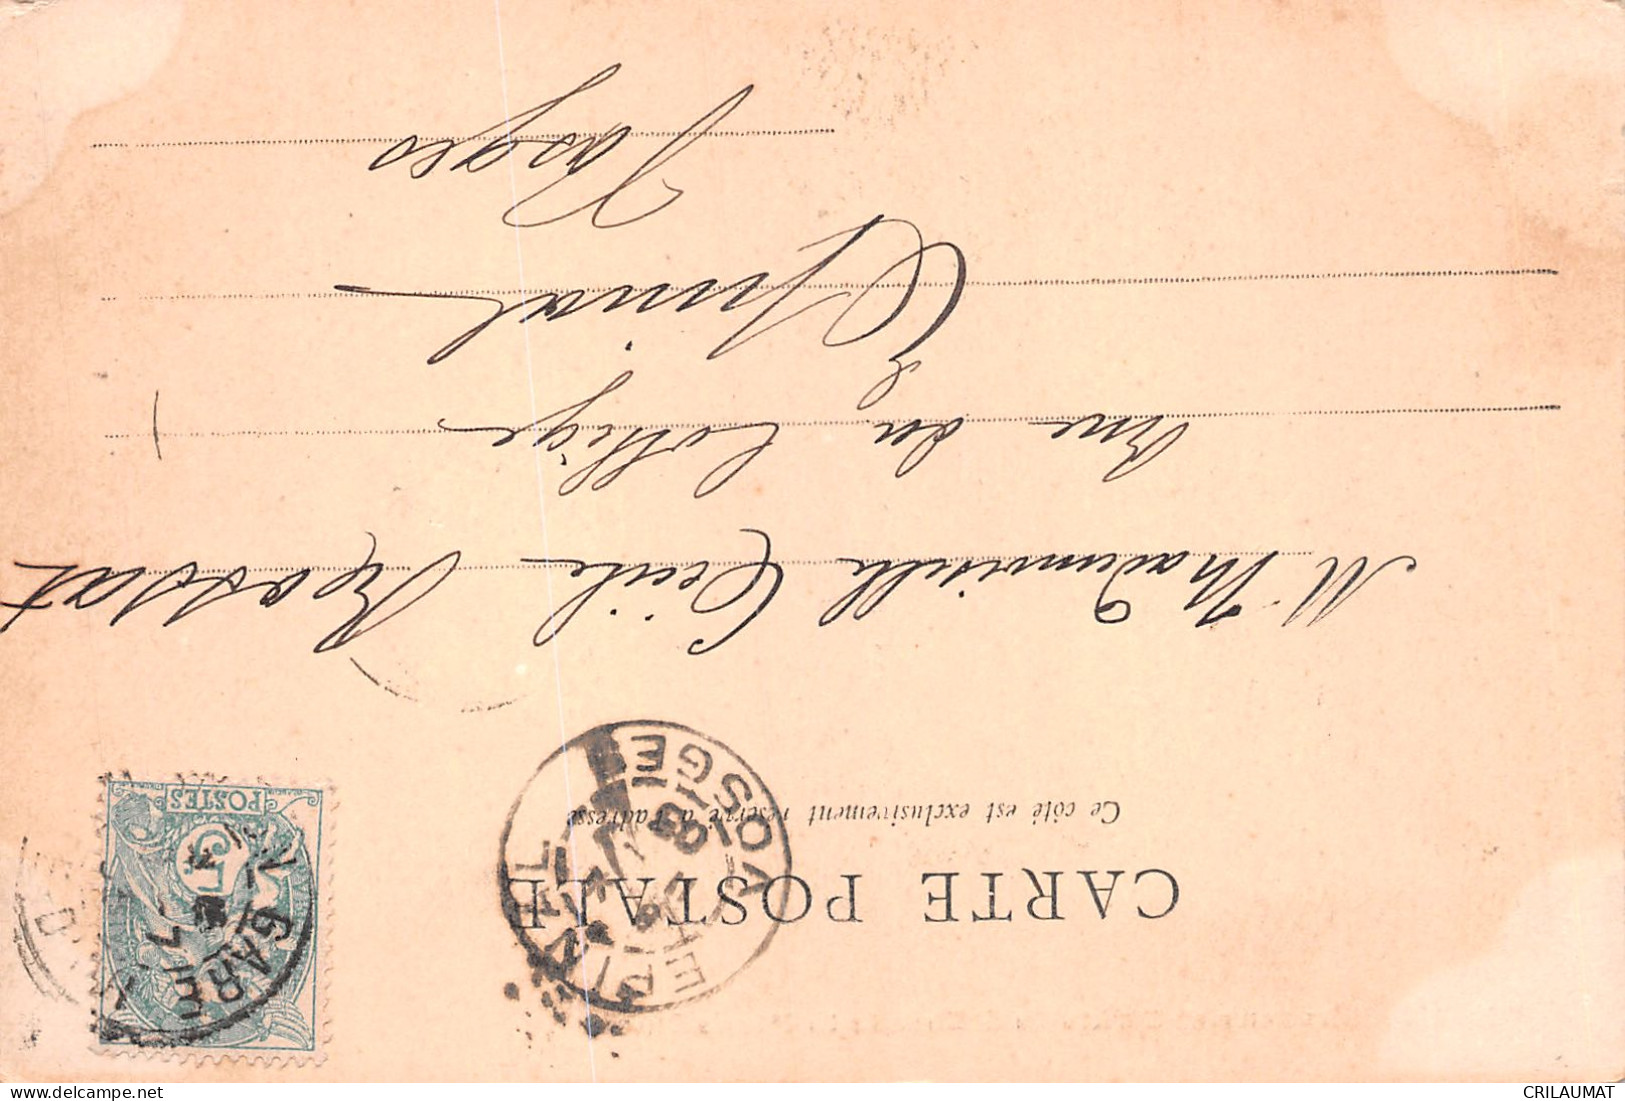 CARTE POSTALE
Ce côté est exclusivement réservé à l'adresse
M Mademoiselle Cécile
Rue du Collège
Epinal
Vosges
POSTES
5c
GARE
EPINAL
VOSGES
CRILAUMAT